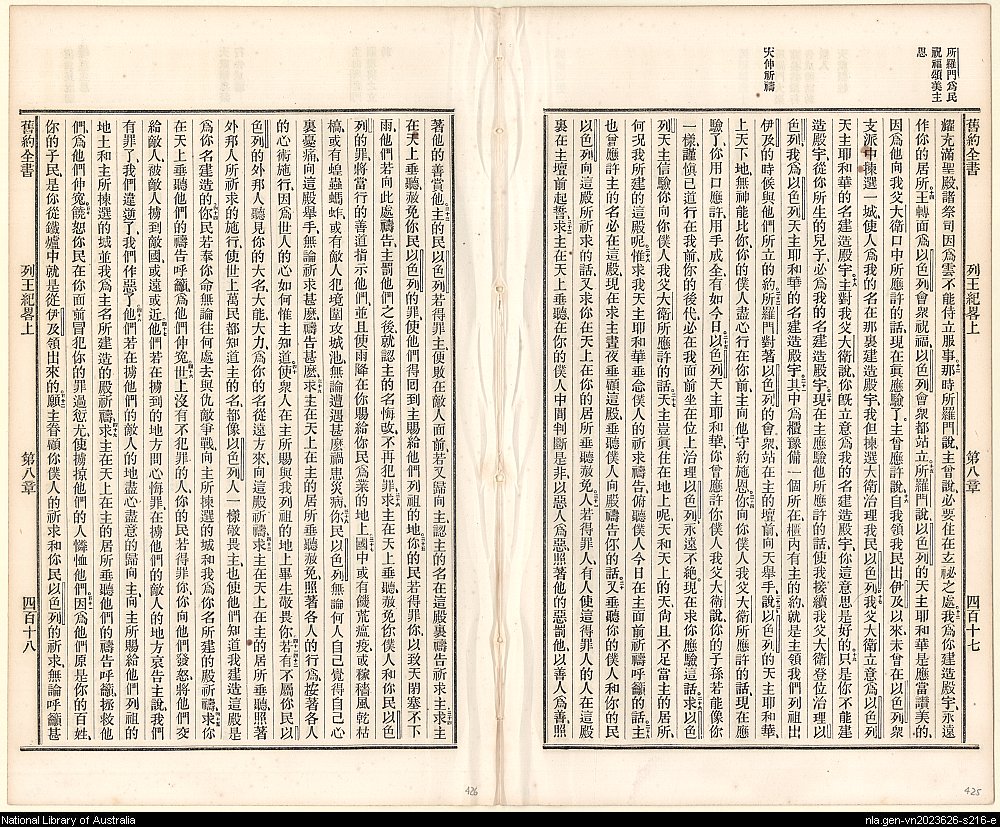 所羅門爲民
祝福頌美主
恩
祈禱
舊約全書
列王紀畧上
第八章
四百十七
耀充滿聖殿、諸祭司因爲雲不能侍立服事、那時所羅門說、主曾說、必要住在玄祕之處、我爲你建造殿宇、永遠
作你的居所、王轉面爲以色列會衆祝福、以色列會衆都站立、所羅門說、以色列的天主耶和華、是應當讚美的、
因爲他向我父大衛口中所應許的話、現在眞應驗了、主曾應許說、自我領我民出伊及以來、未曾在以色列衆
支派中揀選一城、使人爲我的名在那裏建造殿宇、我但揀選大衛治理我民以色列、我父大衛立意爲以色列
天主耶和華的名建造殿宇、主對我父大衛說、你旣立意爲我的名建造殿宇、你這意思是好的、只是你不能建
造殿宇、從你所生的兒子、必爲我的名建造殿宇、現在主應驗他所應許的話、使我接續我父大衛登位治理以
色列、我爲以色列天主耶和華的名建造殿宇、其中爲櫃豫備一個所在、櫃內有主的約、就是主領我們列祖出
伊及的時候、與他們所立的約、所羅門對著以色列的會衆、站在主的壇前、向天舉手、說、以色列的天主耶和華、
上天下地、無神能比你、你的僕人盡心行在你前、主向他守約施恩、你向你僕人我父大衛所應許的話、現在應
驗了、你用口應許、用手成全、有如今日、以色列天主耶和華、你曾應許你僕人我父大衛說、你的子孫若能像你
一樣謹愼已道、行在我前、你的後代必在我面前坐在位上治理以色列、永遠不絕、現在求你應驗這話、求以色
列天主信驗你向你僕人我父大衛所應許的話、天主豈眞住在地上呢、天和天上的天、尙且不足當主的居所、
何況我所建的這殿呢、惟求我天主耶和華垂念僕人的祈求禱告、俯聽僕人今日在主面前祈禱呼籲的話、主
也曾應許主的名必在這殿、現在求主晝夜垂顧這殿、垂聽僕人向殿禱告的話、又垂聽你的僕人和你的民
以色列向這殿所祈求的話、又求你在天上在你的居所垂聽赦免、人若得罪人、有人使這得罪人的人在這殿
裏、在主壇前起誓、求主在天上垂聽、在你的僕人中間判斷是非、以惡人爲惡、照著他的惡罰他、以善人爲善、照
著他的善賞他、主的民以色列若得罪主、使敗在敵人面前、若又歸向主、認主的名、在這殿裏禱告祈求主、求主
在天上垂聽、赦免你民以色列的罪、使他們得回到主賜給他們列祖的地、你的民若得罪你、以致天閉塞不下
雨、他們若向此處禱告、主罰他們之後、就認主的名、悔改不再犯罪、求主在天上垂聽、赦免你僕人和你民以色
列的罪、將當行的善道指示他們、並且使雨降在你賜給你民爲業的地上、國中或有饑荒瘟疫、或稼穡風乾枯
槁、或有蝗蟲螞蚱、或有敵人犯境圍攻城池、無論遭遇甚麽禍患災病、你民以色列無論何人、自己覺得自己心
裏憂痛、向這殿舉手、無論祈求甚麽、禱告甚麽、求主在天上在主的居所垂聽赦免、照著各人的行爲、按著各人
的心術施行、因爲世人的心如何、惟主知道、使衆人在主所賜與我列祖的地上、畢生敬畏你、若有不屬你民以
色列的外邦人、聽見你的大名、大能大力、爲你的名從遠方來向這殿祈禱、求主在天上在主的居所垂聽、照著
外邦人所祈求的施行、使世上萬民都知道主的名、都像以色列人一樣敬畏主、也使他們知道我建造這殿、是
爲你名建造的、你民若奉你命、無論往何處去與仇敵爭戰、向主所揀選的城和我爲你名所建的殿祈禱、求你
在天上垂聽他們的禱告呼籲、爲他們伸寃、世上沒有不犯罪的人、你的民若得罪你、你向他們發怒、將他們交
給敵人、被敵人擄到敵國、或遠或近、他們若在擄到的地方、問心悔罪、在擄他們的敵人的地方哀告主說、我們
有罪了、我們違逆了、我們作惡了、他們若在擄他們的敵人的地、盡心盡意的歸向主、向主所賜給他們列祖的
地土、和主所揀選的城、並我爲主名所建造的殿祈禱、求主在天上在主的居所垂聽他們的禱告呼籲、拯救他
們、爲他們伸寃、饒恕你民在你面前冒犯你的罪過愆尤、使擄掠他們的人憐恤他們、因爲他們原是你的百姓、
你的子民、是你從鐵爐中、就是從伊及領出來的、願主眷顧你僕人的祈求、和你民以色列的祈求、無論呼籲甚
舊約全書
列王紀畧上
第八章
四百十八
426
425
National Library of Australia
nla.gen-vn2023626-s216-e